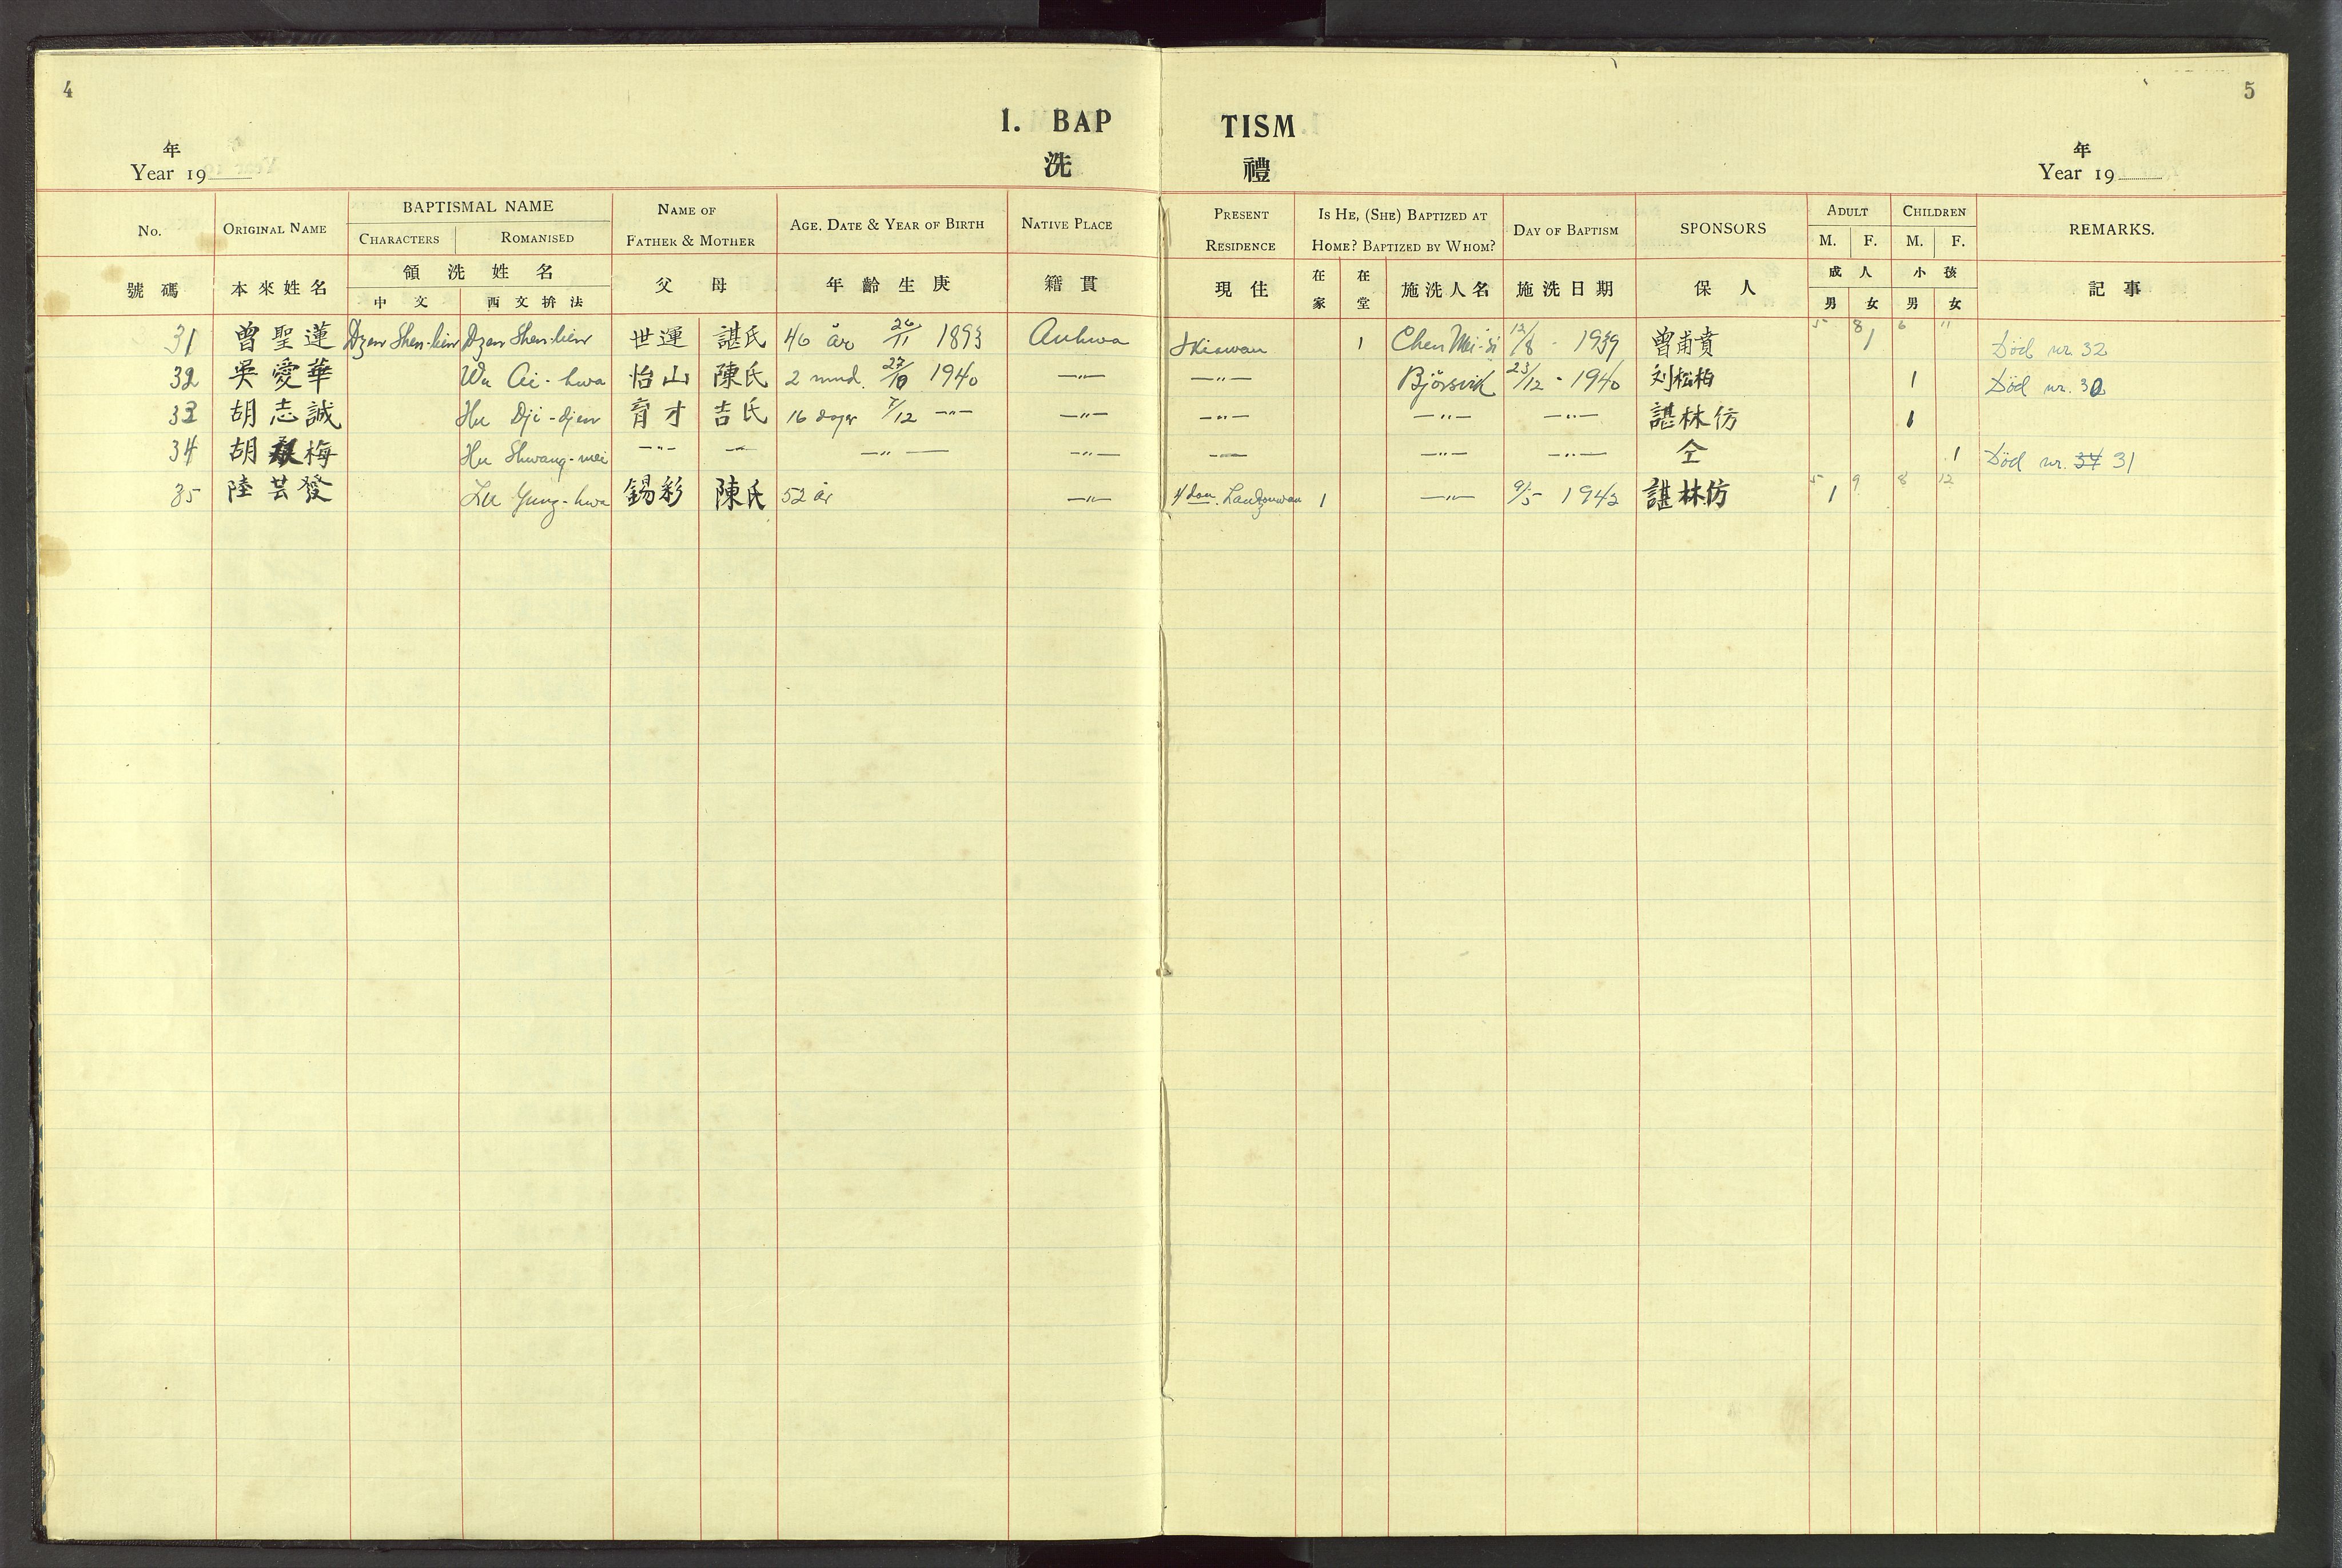 4
5
1. BAP TISM
洗 禮
年
Year 19
年
Year 19
No. ORIGINAL NAME BAPTISMAL NAME NAME OF FATHER & MOTHER AGE. DATE & YEAR OF BIRTH NATIVE PLACE PRESENT RESIDENCE IS HE, (SHE) BAPTIZED AT HOME? BAPTIZED BY WHOM? DAY OF BAPTISM SPONSORS ADULT CHILDREN REMARKS.
CHARACTERS ROMANISED M. F. M. F.
號碼 本來姓名 領洗姓名 父 母 年齡生庚 籍貫 現住 在家 在堂 施洗人名 施洗日期 保人 成人 小孩 記事
中文 西文拚法 男 女 男 女
31 曾聖蓮 Dzen Shen-lien Dzen Shen-lien 世運 諶氏 46 år 26/11 1893 Anhwa 1 Chen Mei-si 12/8 - 1939 5 8 1 6 11 Död nr. 32
32 吳愛華 Wu Ai-hwa 怡山 陳氏 2 mnd. 27/10 1940 -"- -"- Björsvik 23/12 - 1940 刘松柏 1 Död nr. 30
33 胡志誠 Hu Dji-djen 育才 吉氏 16 dager 7/12 -"- -"- -"- -"- -"- 諶林仿 1
34 胡 梅 Hu Shwang-mei -"- -"- -"- -"- -"- -"- -"- 仝 1 Död nr. 34 31
35 陸芸發 Lu Yung-hwa 錫彩 陳氏 52 år -"- 4 don. 1 -"- 9/5 1942 諶林仿 5 1 9 8 12